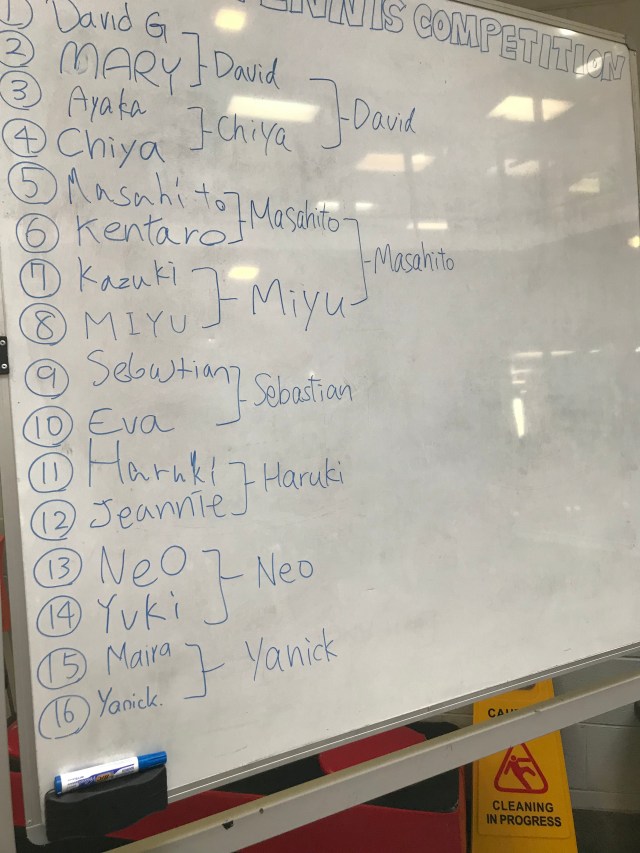 TENNIS COMPETITION
① David G
② MARY David
③ Ayaka David
④ Chiya Chiya
⑤ Masahito Masahito
⑥ Kentaro
⑦ Kazuki Masahito
⑧ MIYU Miyu
⑨ Sebastian Sebastian
⑩ Eva
⑪ Haruki Haruki
⑫ Jeannie
⑬ NeO Neo
⑭ Yuki
⑮ Maira Yanick
⑯ Yanick.
CLEANING
IN PROGRESS